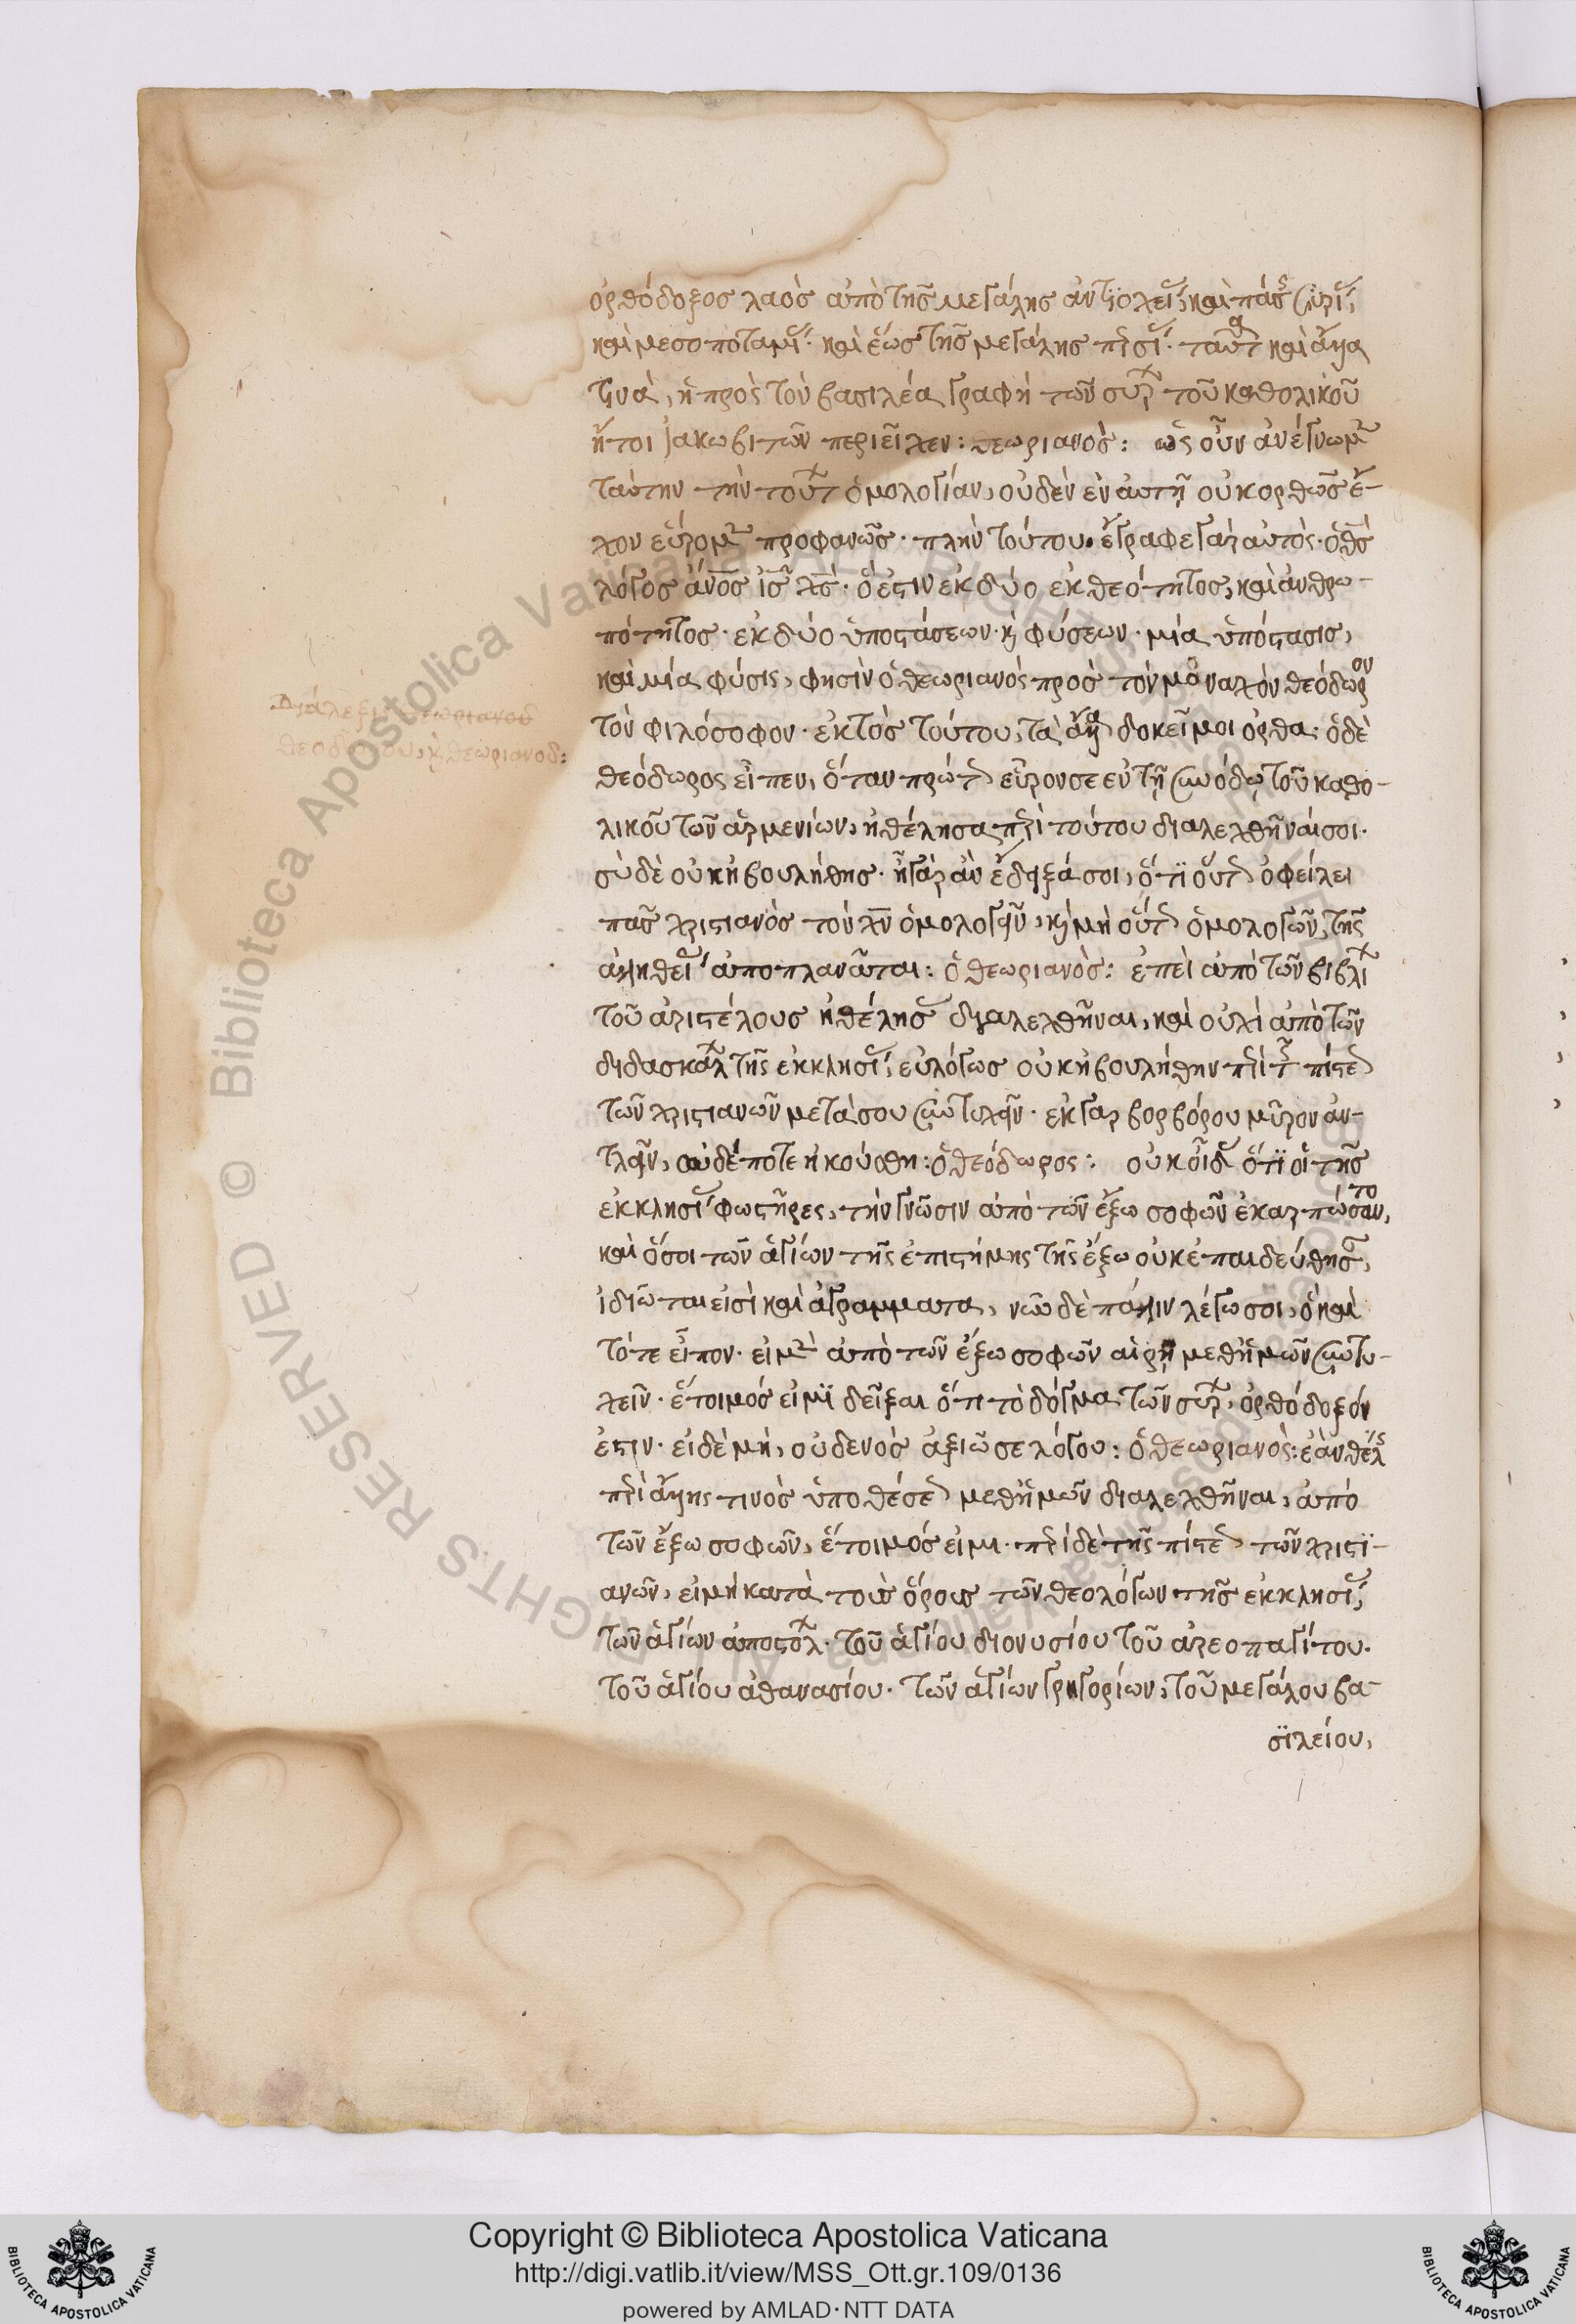 ὀρθόδοξος λαὸς ἀπὸ τῆς μεγάλης ἀντϊοχεί(ας), καὶ πάσ(ης) συρί(ας),
καὶ μεσοποταμί(ας)· καὶ ἕως τῆς μεγάλης περσί(ας)· ταῦτα καὶ ἄλλα
τινὰ, ἡ πρὸς τὸν βασιλέα γραφὴ τῶν σύρ(ων) τοῦ καθολικοῦ
ἤτοι ἰακωβιτῶν περιεῖχεν: θεωριανὸς: ὡς οὖν ἀνέγνωμ(εν)
ταύτην τὴν τούτ(ων) ὁμολογίαν, οὐδὲν ἐν αὐτῇ οὐκ ορθῶς έ-
χον εὕρομ(εν) προφανῶς· πλὴν τούτου· ἔγραφε γὰρ αὐτὸς· ὁ θς
λόγος ἄνος ις χς· ὅ ἐστιν ἐκ δύο ἐκ θεότητος, καὶ ἀνθρω-
πότητος· ἐκ δύο ὑποστάσεων· κ(αὶ) φύσεων· μία ὑπόστασις,
καὶ μία φύσις, φησὶν ὁ θεωριανός πρὸς τὸν μοναχὸν θεόδωρον
τὸν φιλόσοφον· ἐκτὸς τούτου, τὰ ἄλλα δοκεῖ μοι ὀρθα· ὁ δὲ
θεόδωρος εἶπεν, ὅταν πρώτ(ως) εὗρον σε ἐν τῇ συνόδῳ τοῦ καθο-
λικοῦ τῶν ἀρμενίων, ἠθέλησα περὶ τούτου διαλεχθῆναί σοι·
σὺ δὲ οὐκ ἠβουλήθης· ἦ γὰρ ἂν ἔδειξά σοι, ὅτϊ οὕτ(ως) ὀφείλει
πᾶς χριστιανὸς τὸν χν ὁμολογεῖν, κ(αὶ) μὴ οὕτ(ως) ὁμολογῶν, τῆς
ἀληθεί(ας) ἀποπλανᾶται: ὁ θεωριανὸς: ἐπεὶ ἀπὸ τῶν βιβλί(ων)
τοῦ ἀριστέλους ἠθέλησ(ας) διαλεχθῆναι, καὶ οὐχὶ ἀπὸ τῶν
διδασκάλ(ων) τῆς ἐκκλησί(ας), εὐλόγως οὐκ ἠβουλήθην περὶ τ(ῆς) πίστε(ως)
τῶν χριστιανῶν μετά σου συντυχεῖν· ἐκ γὰρ βορβόρου μῦρον ἀν-
τλεῖν, οὐδέποτε ἠκούσθη: ὁ θεόδωρος: οὐκ οἶδ(ας) ὅτϊ οἱ τῆς
ἐκκλησί(ας) φωστῆρες, τὴν γνῶσιν ἀπὸ τῶν ἔξω σοφῶν ἐκαρπώσαντο,
καὶ ὅσοι τῶν ἁγίων τῆς ἐπιστήμης τῆς ἔξω οὐκ ἐπαιδεύθησ(αν),
ἰδιῶται εἰσὶ καὶ ἀγράμματα, νῦν δὲ πάλιν λέγω σοι, ὃ καὶ
τότε εἶπον· εἰ μ(ὲν) ἀπὸ τῶν ἔξω σοφῶν αἱρῇ μεθ' ἡμῶν συντυ-
χεῖν· ἕτοιμός εἰμϊ δεῖξαι ὅτι τὸ δόγμα τῶν σύρ(ων), ὀρθόδοξόν
ἐστιν· εἰ δὲ μὴ, οὐδενὸς ἀξιῶ σε λόγου: ὁ θεωριανὸς: ἐὰν θέλ(ης)
περὶ ἄλλης τινὸς ὑποθέσε(ως) μεθ' ἡμῶν διαλεχθῆναι, ἀπὸ
τῶν ἔξω σοφῶν, ἕτοιμός εἰμι· περὶ δὲ τῆς πίστε(ως) τῶν χριστϊ-
ανῶν, εἰ μὴ κατὰ τοὺς ὅρους τῶν θεολόγων τῆς ἐκκλησί(ας),
τῶν ἁγίων ἀποστόλ(ων)· τοῦ ἁγίου διονυσίου τοῦ ἀρεοπαγίτου·
τοῦ ἁγίου ἀθανασίου· τῶν ἁγίων γρηγορίων, τοῦ μεγάλου βα-
σϊλείου,
Διάλεξις θεωριανοῦ
θεοδώρου, κ(αὶ) θεωριανοῦ:
Biblioteca Apostolica Vaticana
Copyright © Biblioteca Apostolica Vaticana
http://digi.vatlib.it/view/MSS_Ott.gr.109/0136
powered by AMLAD·NTT DATA
BIBLIOTECA APOSTOLICA VATICANA
BIBLIOTECA APOSTOLICA VATICANA